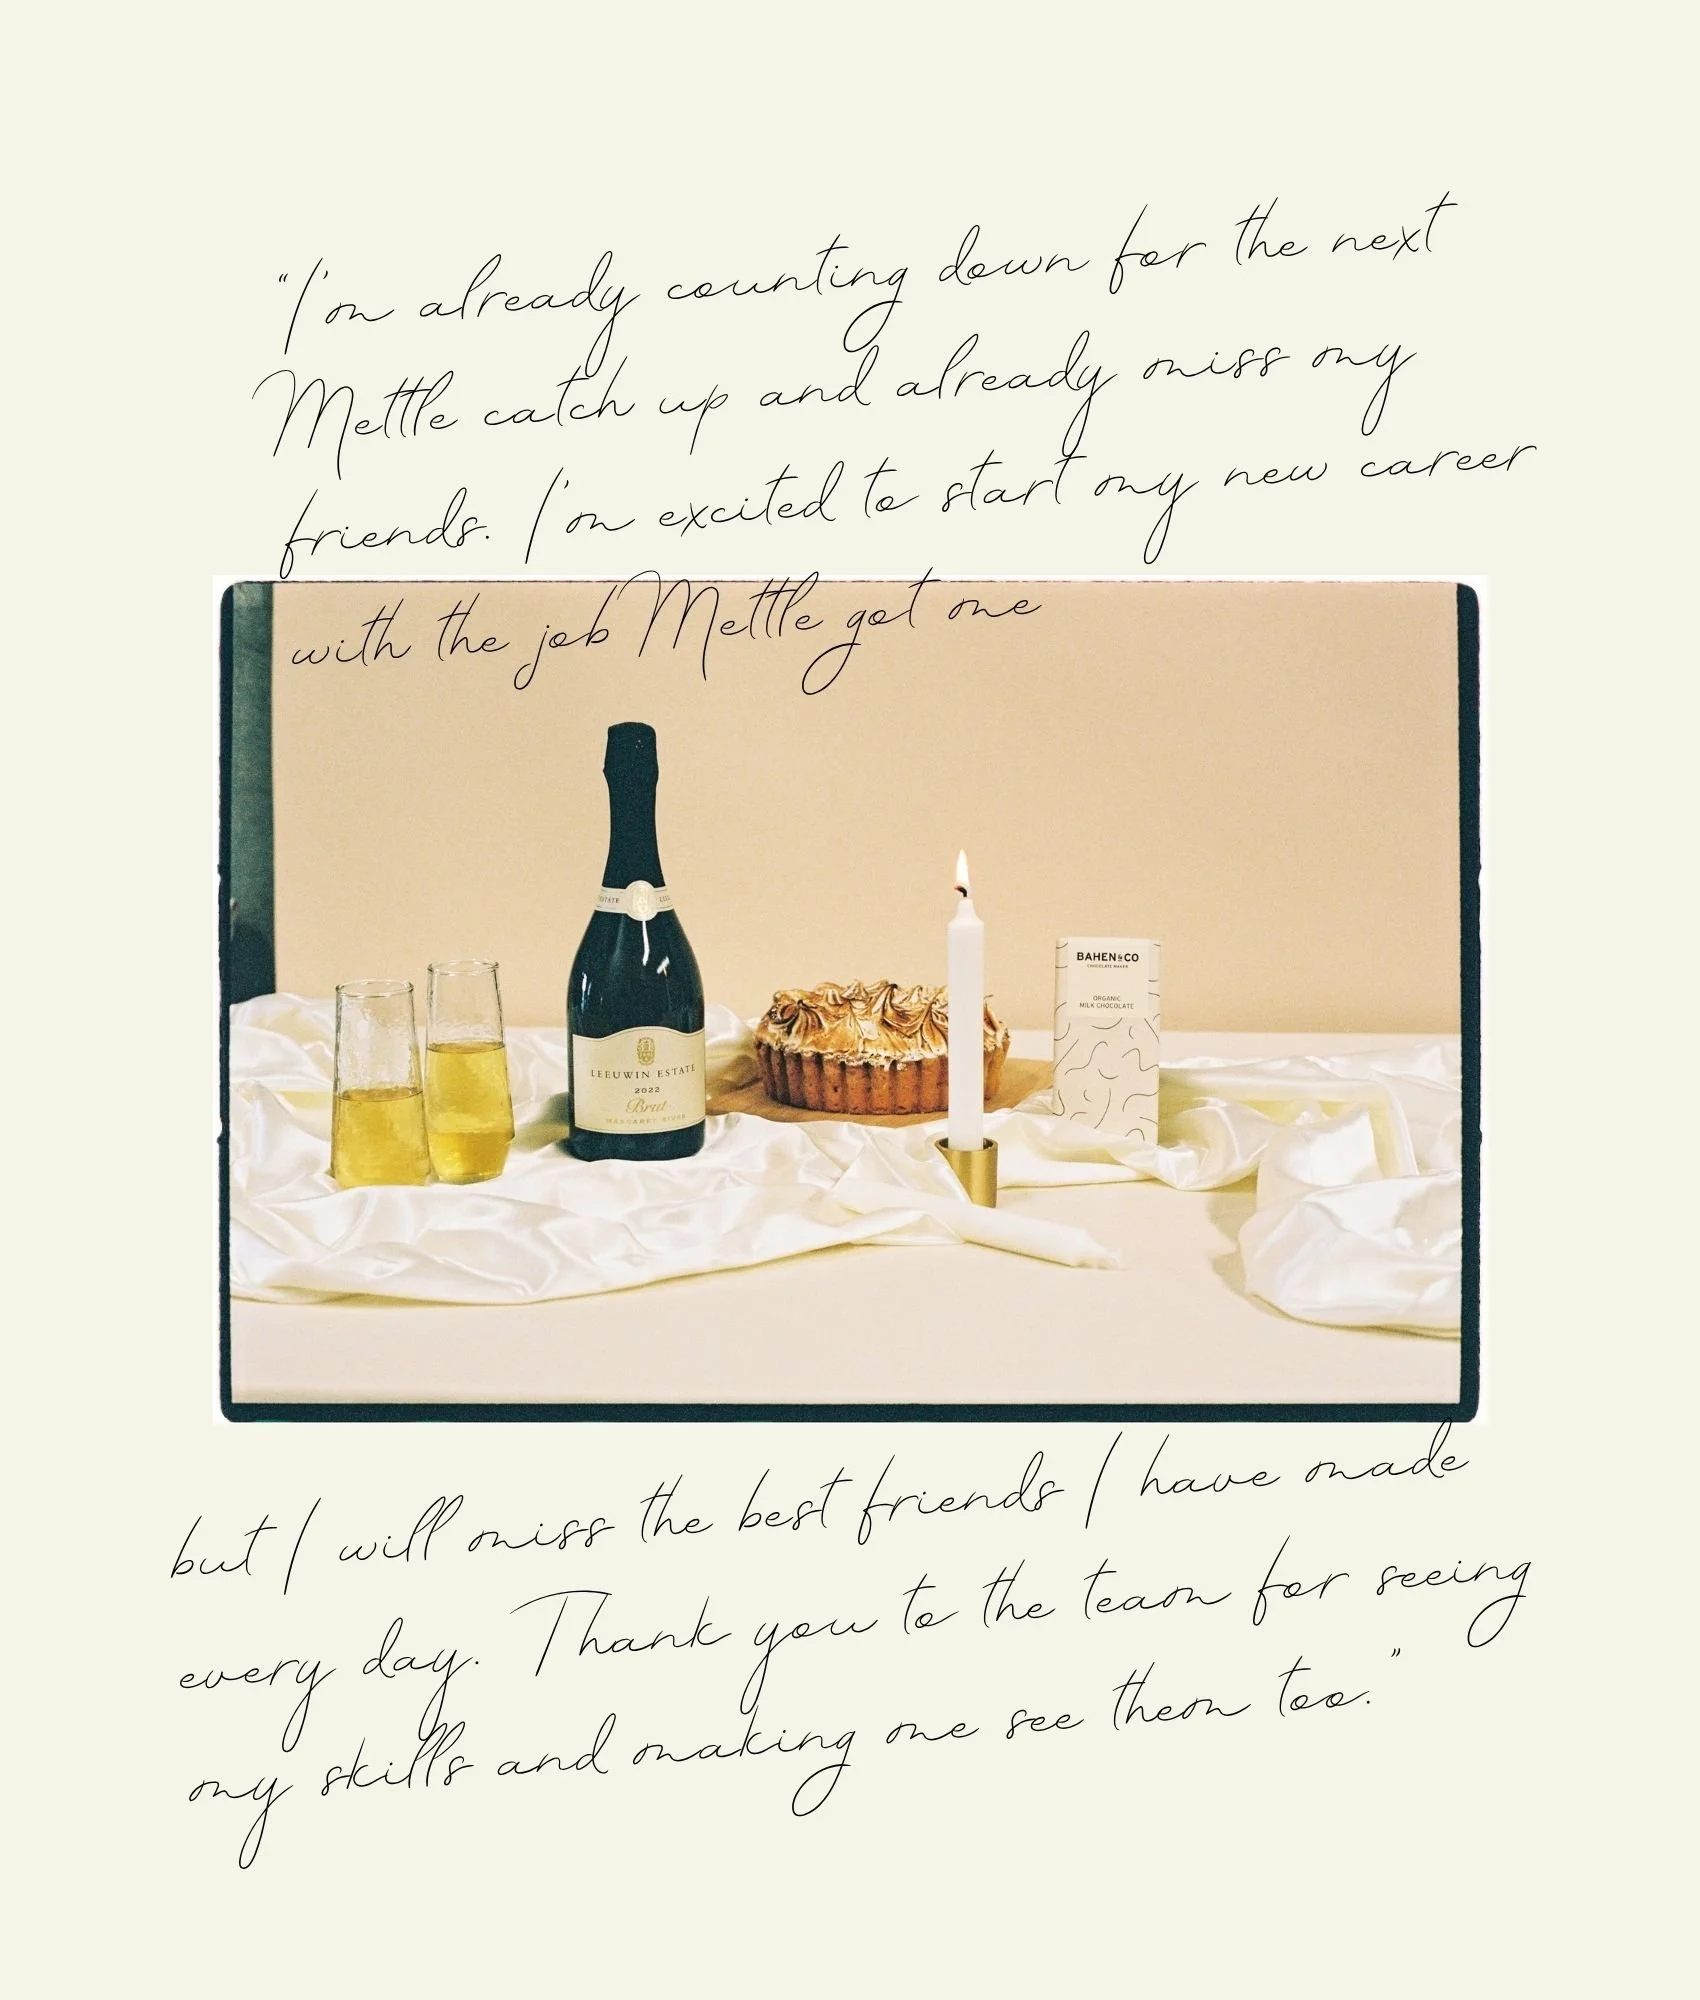 "I'm already counting down for the next
Mettle catch up and already miss my
friends. I'm excited to start my new career
with the job Mettle got me
ESTATE
LEEUWIN ESTATE
2022
Brut
MARGARET RIVER
BAHEN & CO
CHOCOLATE MAKER
ORGANIC
MILK CHOCOLATE
but I will miss the best friends I have made
every day. Thank you to the team for seeing
my skills and making me see them too."